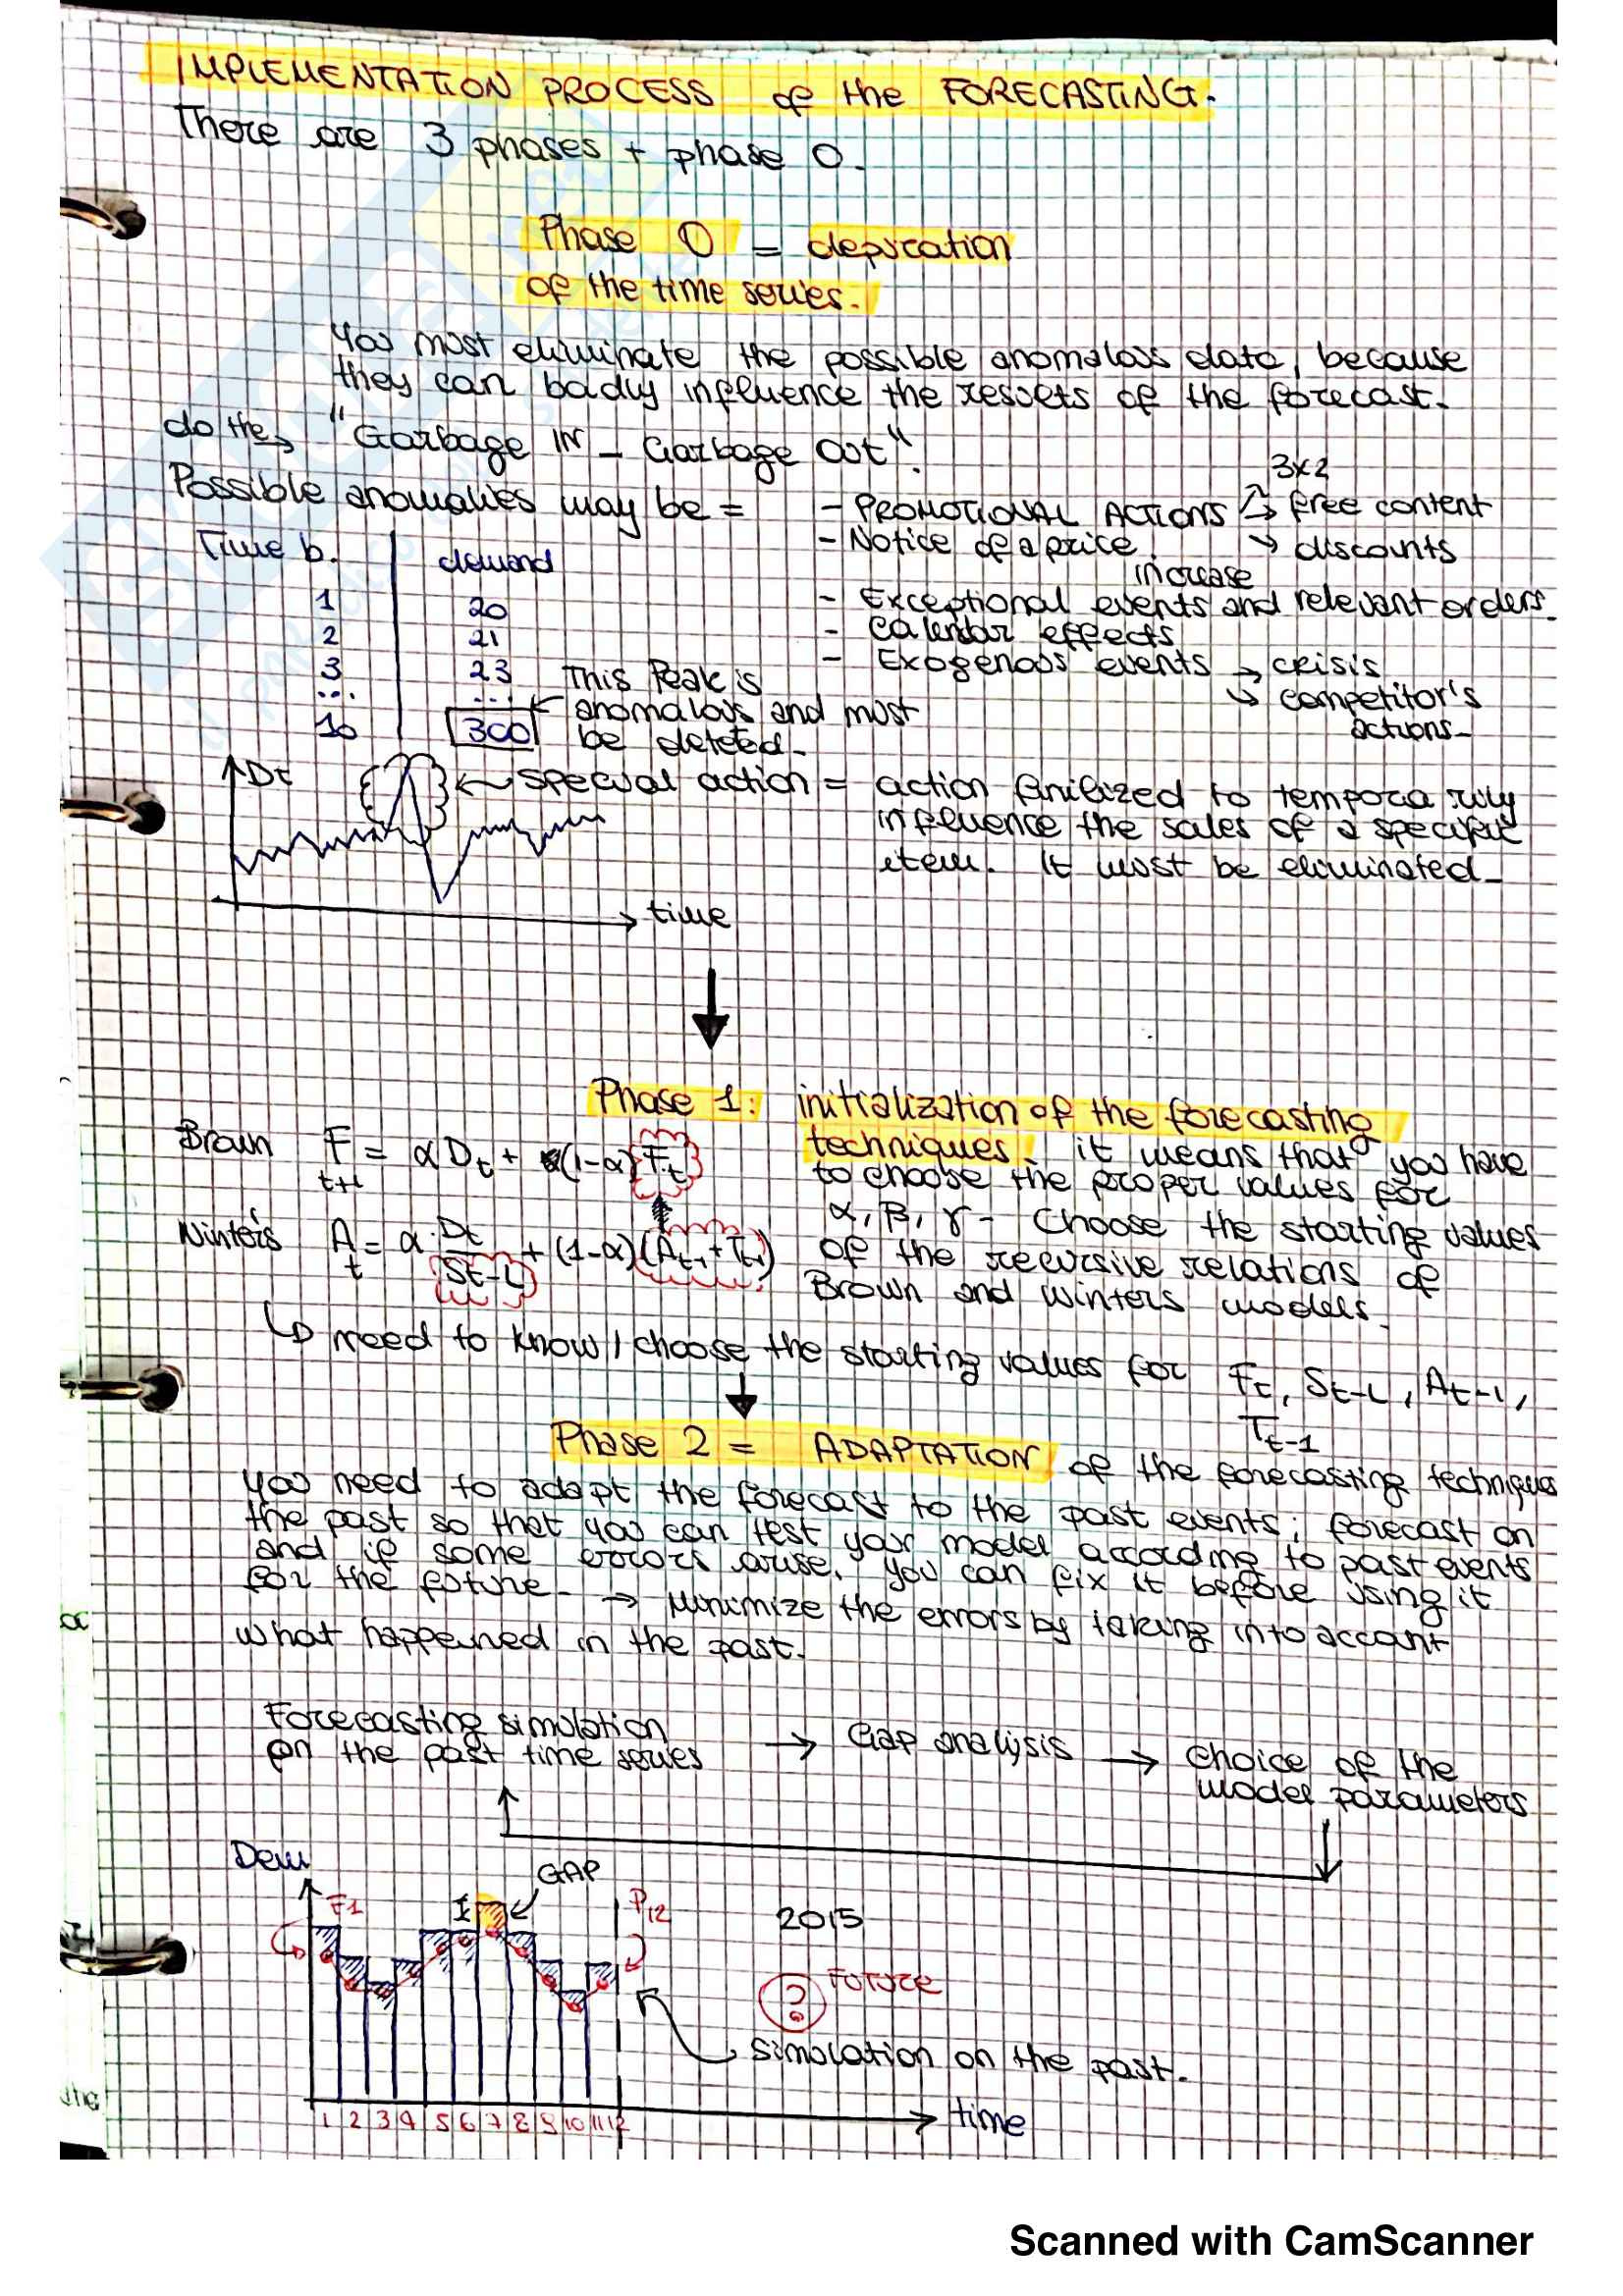 IMPLEMENTATION PROCESS of the FORECASTING.
There are 3 phases + phase 0.
Phase 0 = depuration
of the time series.
You must eliminate the possible anomalous data, because
they can badly influence the results of the forecast.
"Garbage IN - Garbage Out".
Possible anomalies may be =
- PROMOTIONAL ACTIONS
3x2
free content
→ discounts
- Notice of a price
increase
- Exceptional events and relevant orders.
- Calendar effects
- Exogenous events → crisis
→ competitor's
actions-
Time b. demand
1 20
2 21
3 23
... ...
10 300
This Peak is
anomalous and must
be deleted-
Dt
special action = action finilized to temporarily
influence the sales of a specific
item. It must be eliminated-
time
Phase 1: initialization of the forecasting
techniques. it means that you have
to choose the proper values for
α, β, γ - Choose the starting values
of the recursive relations of
Brown and Winters models.
Brown F t+1 = α Dt + (1-α) Ft
Winters At = α · Dt / St-L + (1-α)(At-1 + Tt-1)
↳ need to know / choose the starting values for Ft, St-L, At-1,
Tt-1
Phase 2 = ADAPTATION of the forecasting techniques
you need to adapt the forecast to the past events; forecast on
the past so that you can test your model according to past events
and if some errors arise, you can fix it before using it
for the future- → Minimize the errors by taking into account
what happened in the past.
Forecasting simulation
on the past time series → Gap analysis → choice of the
model parameters
Dem
F1
GAP
P12
2015
? Future
simulation on the past.
1 2 3 4 5 6 7 8 9 10 11 12
time
Scanned with CamScanner